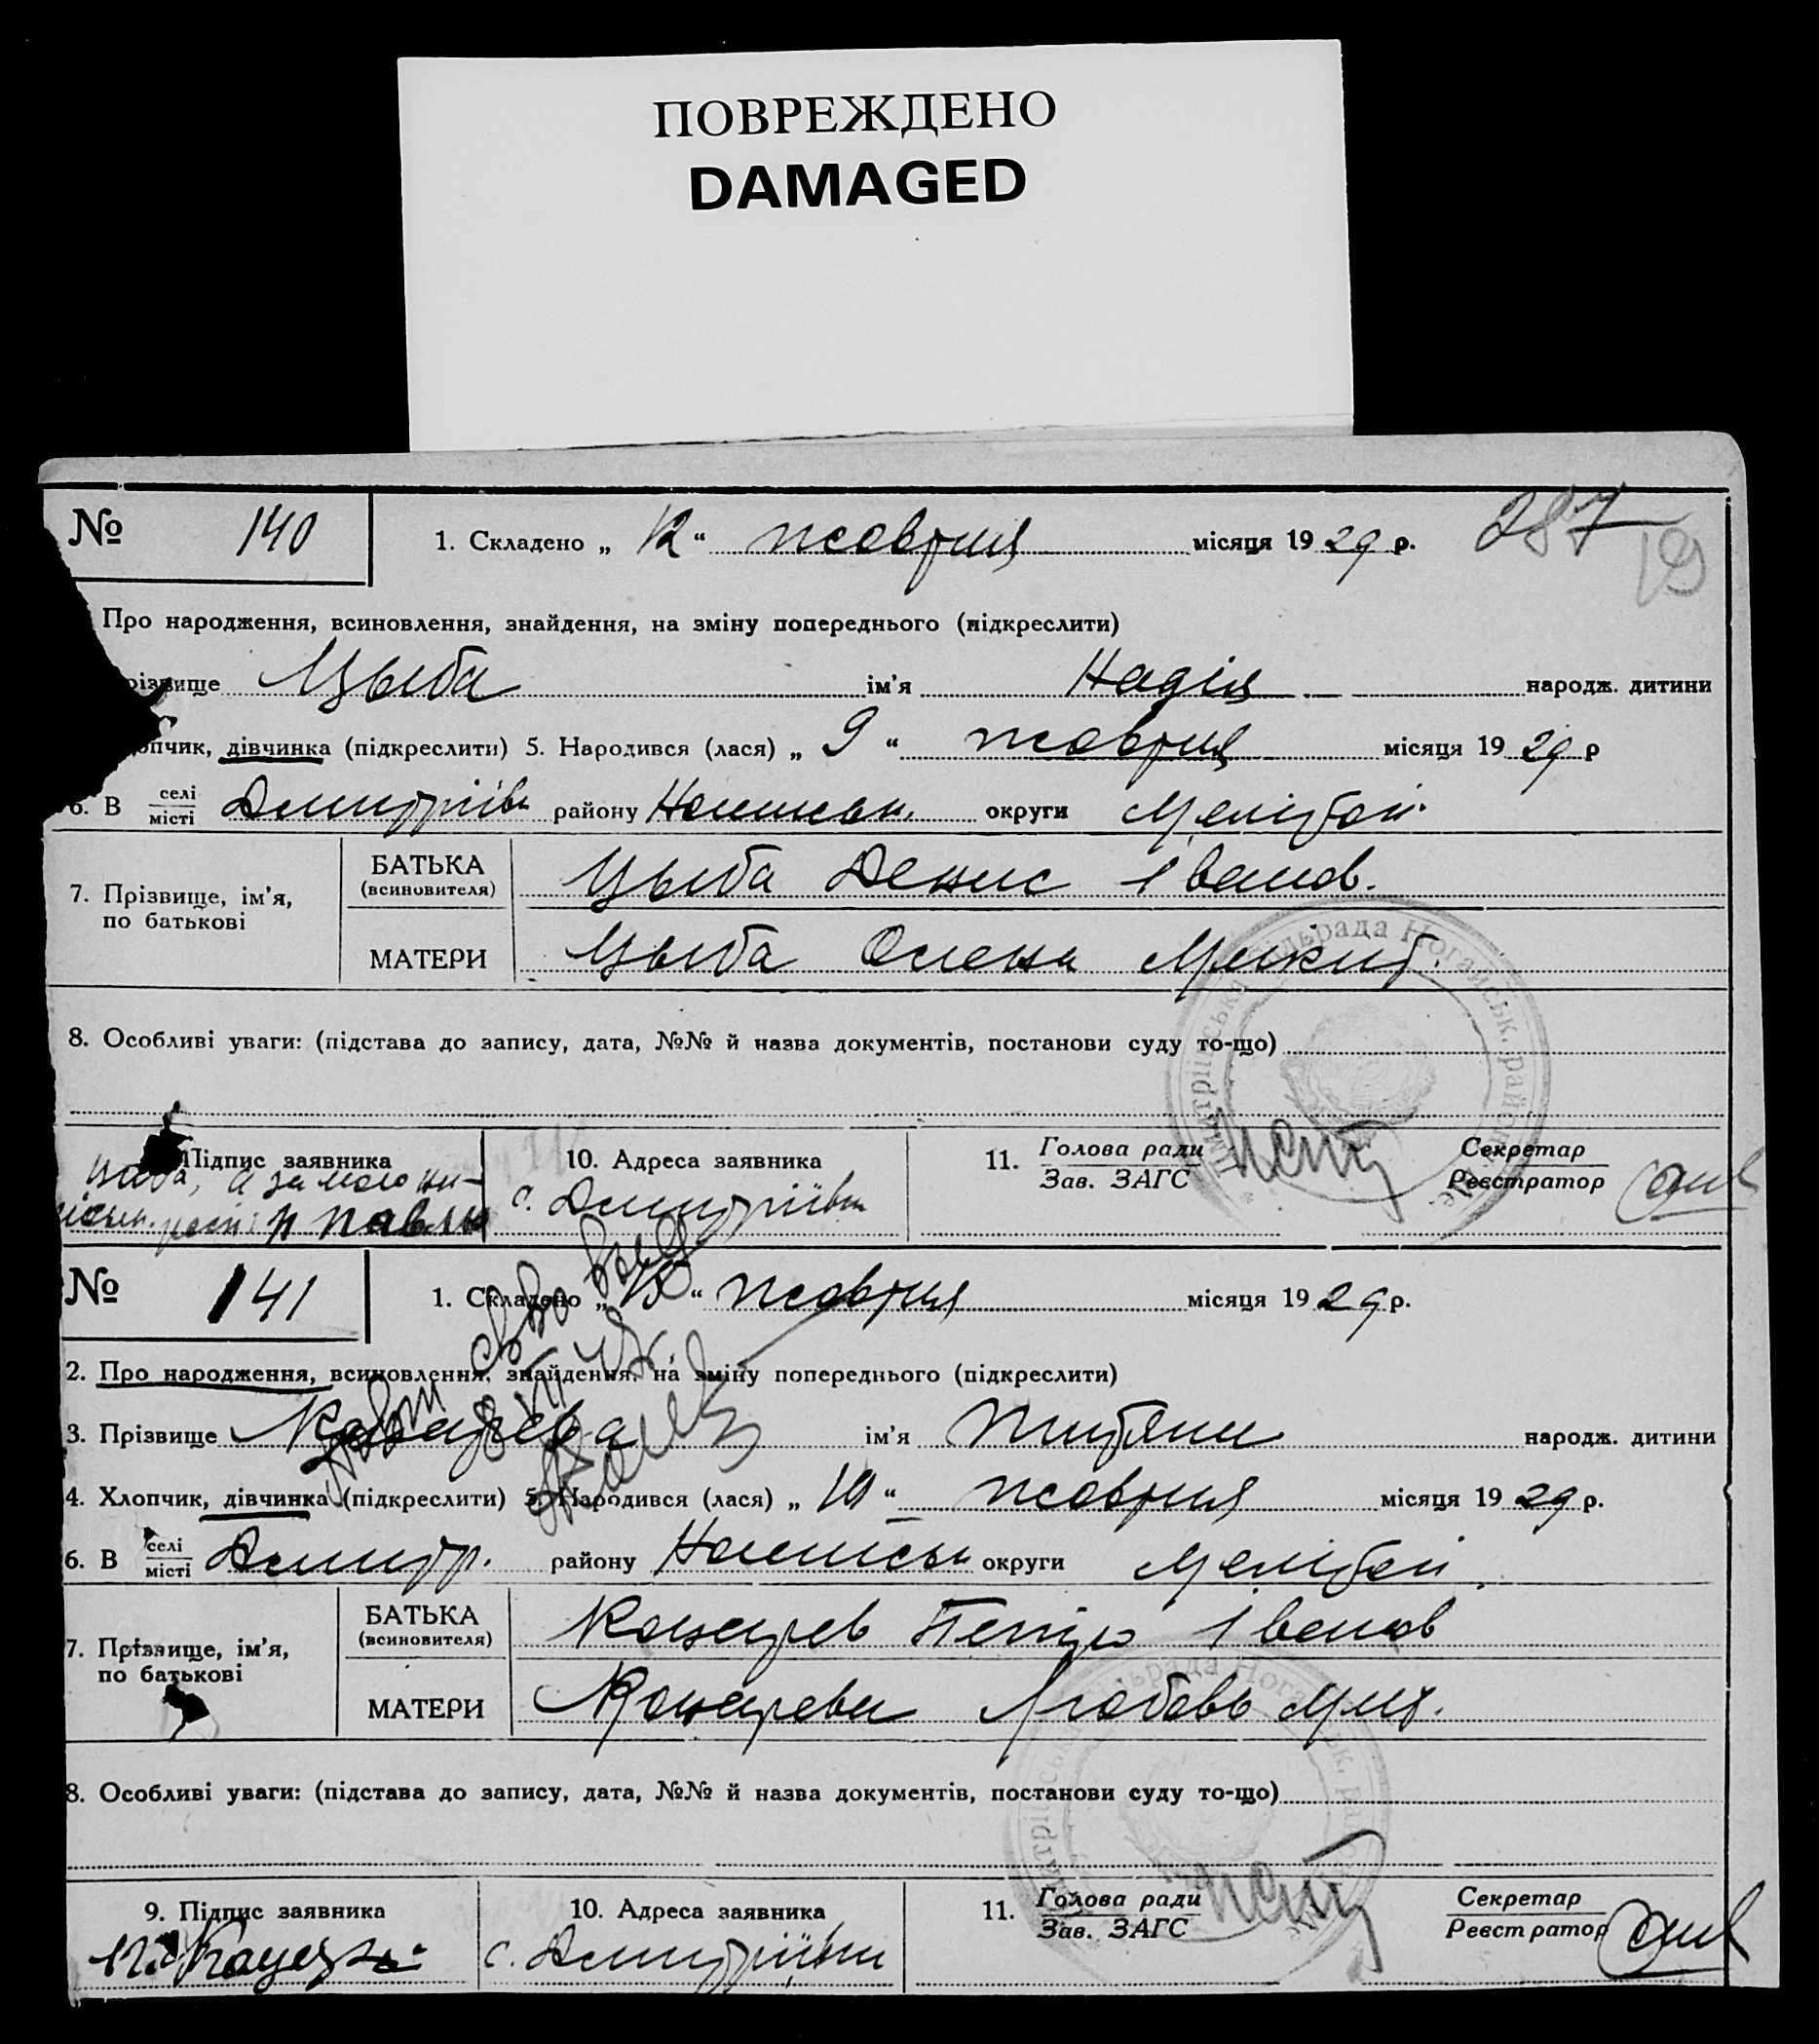 ПОВРЕЖДЕНО
DAMAGED
№ 140
1. Складено „ 12 “ жовтня місяця 19 29 р. 287
19
Про народження, всиновлення, знайдення, на зміну попереднього (підкреслити)
різвище Цыба ім'я Надія народж. дитини
опчик, дівчинка (підкреслити) 5. Народився (лася) „ 9 “ жовтня місяця 19 29 р
6. В селі місті Дмитрівк району округи Меліт
7. Прізвище, ім'я, по батькові
БАТЬКА (всиновителя) Цыба Денис Іванов.
МАТЕРИ Цыба Олена Микит.
8. Особливі уваги: (підстава до запису, дата, №№ й назва документів, постанови суду то-що)
Підпис заявника
10. Адреса заявника
с. Дмитріівка
11. Голова ради
Зав. ЗАГС
Секретар
Реєстратор
№ 141
1. Складено „ “ жовтня місяця 19 29 р.
2. Про народження, всиновлення, знайдення, на зміну попереднього (підкреслити)
3. Прізвище ім'я народж. дитини
4. Хлопчик, дівчинка (підкреслити) 5. Народився (лася) „ 10 “ жовтня місяця 19 29 р.
6. В селі місті Дмитр. району округи Меліт
7. Прізвище, ім'я, по батькові
БАТЬКА (всиновителя) Петро Іванов
МАТЕРИ Любовь Мит.
8. Особливі уваги: (підстава до запису, дата, №№ й назва документів, постанови суду то-що)
9. Підпис заявника
10. Адреса заявника
с. Дмитріівки
11. Голова ради
Зав. ЗАГС
Секретар
Реєстратор